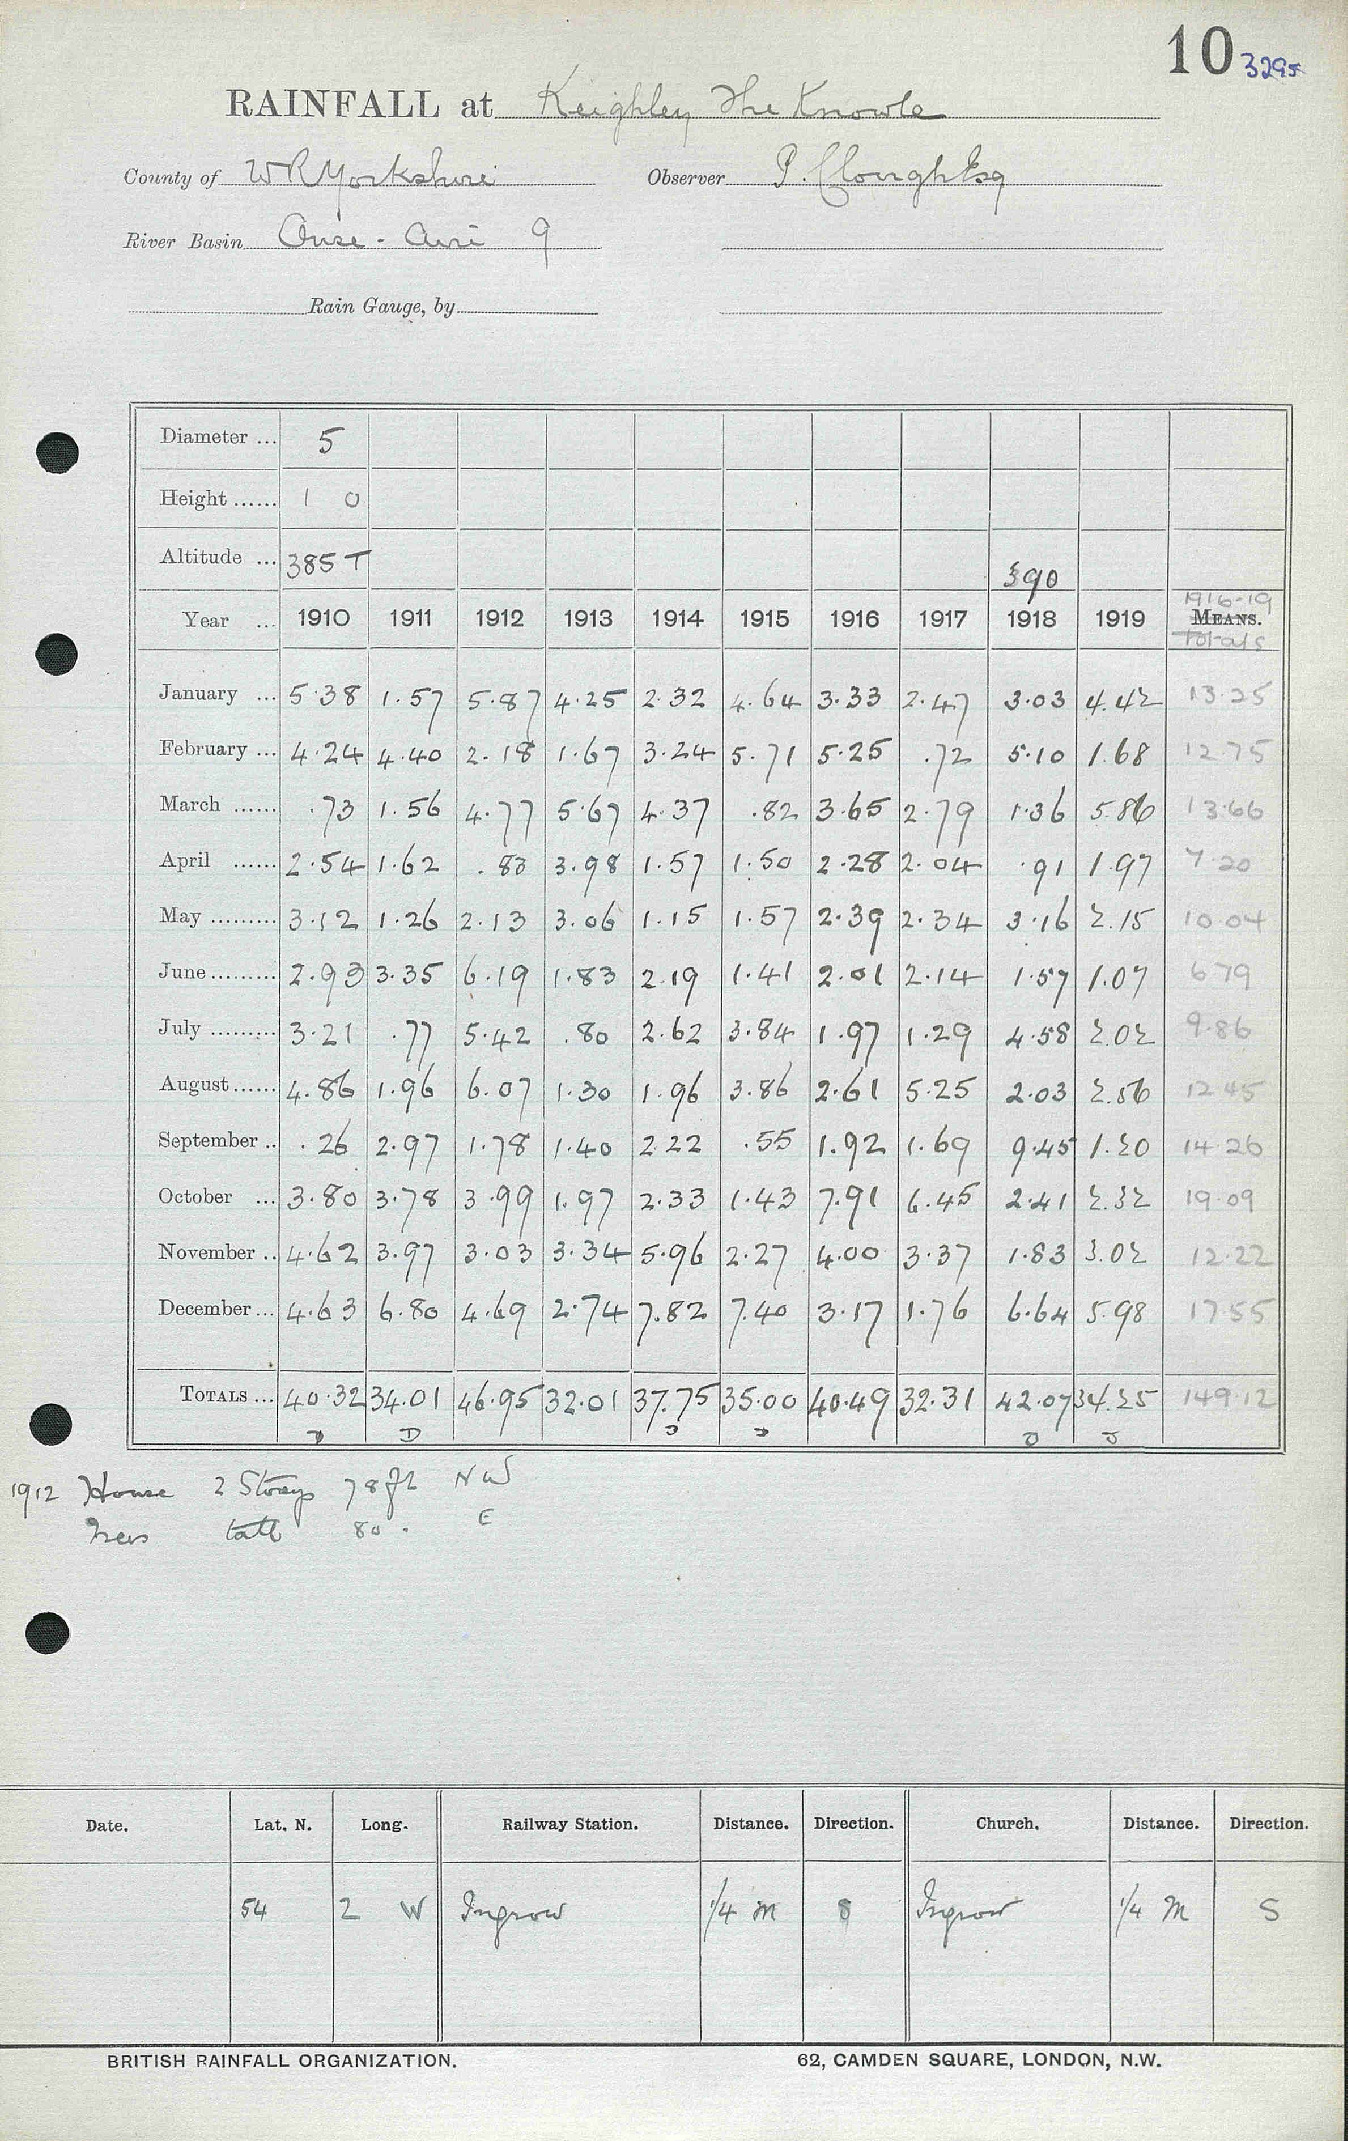 10 3295
RAINFALL at Keighley The Knowle
County of W R Yorkshire Observer P. Clough Esq
River Basin Ouse - Aire 9
Rain Gauge, by
Diameter ... 5
Height ...... 1 0
Altitude ... 385 T 390
1916-19
Year ... 1910 1911 1912 1913 1914 1915 1916 1917 1918 1919 MEANS.
Totals
January ... 5.38 1.57 5.87 4.25 2.32 4.64 3.33 2.47 3.03 4.42 13.25
February ... 4.24 4.40 2.18 1.67 3.24 5.71 5.25 .72 5.10 1.68 12.75
March ...... .73 1.56 4.77 5.67 4.37 .82 3.65 2.79 1.36 5.86 13.66
April ...... 2.54 1.62 .83 3.98 1.57 1.50 2.28 2.04 .91 1.97 7.20
May ......... 3.12 1.26 2.13 3.06 1.15 1.57 2.39 2.34 3.16 2.15 10.04
June ......... 2.93 3.35 6.19 1.83 2.19 1.41 2.01 2.14 1.57 1.07 6.79
July ......... 3.21 .77 5.42 .80 2.62 3.84 1.97 1.29 4.58 2.02 9.86
August ...... 4.86 1.96 6.07 1.30 1.96 3.86 2.61 5.25 2.03 2.56 12.45
September .. .26 2.97 1.78 1.40 2.22 .55 1.92 1.69 9.45 1.20 14.26
October ... 3.80 3.78 3.99 1.97 2.33 1.43 7.91 6.45 2.41 2.32 19.09
November .. 4.62 3.97 3.03 3.34 5.96 2.27 4.00 3.37 1.83 3.02 12.22
December ... 4.63 6.80 4.69 2.74 7.82 7.40 3.17 1.76 6.64 5.98 17.55
TOTALS ... 40.32 34.01 46.95 32.01 37.75 35.00 40.49 32.31 42.07 34.25 149.12
1912 House 2 Storeys 78 ft NW
Trees tall 80 . E
Date. Lat. N. Long. Railway Station. Distance. Direction. Church. Distance. Direction.
54 2 W Ingrow 1/4 m S Ingrow 1/4 m S
BRITISH RAINFALL ORGANIZATION. 62, CAMDEN SQUARE, LONDON, N.W.